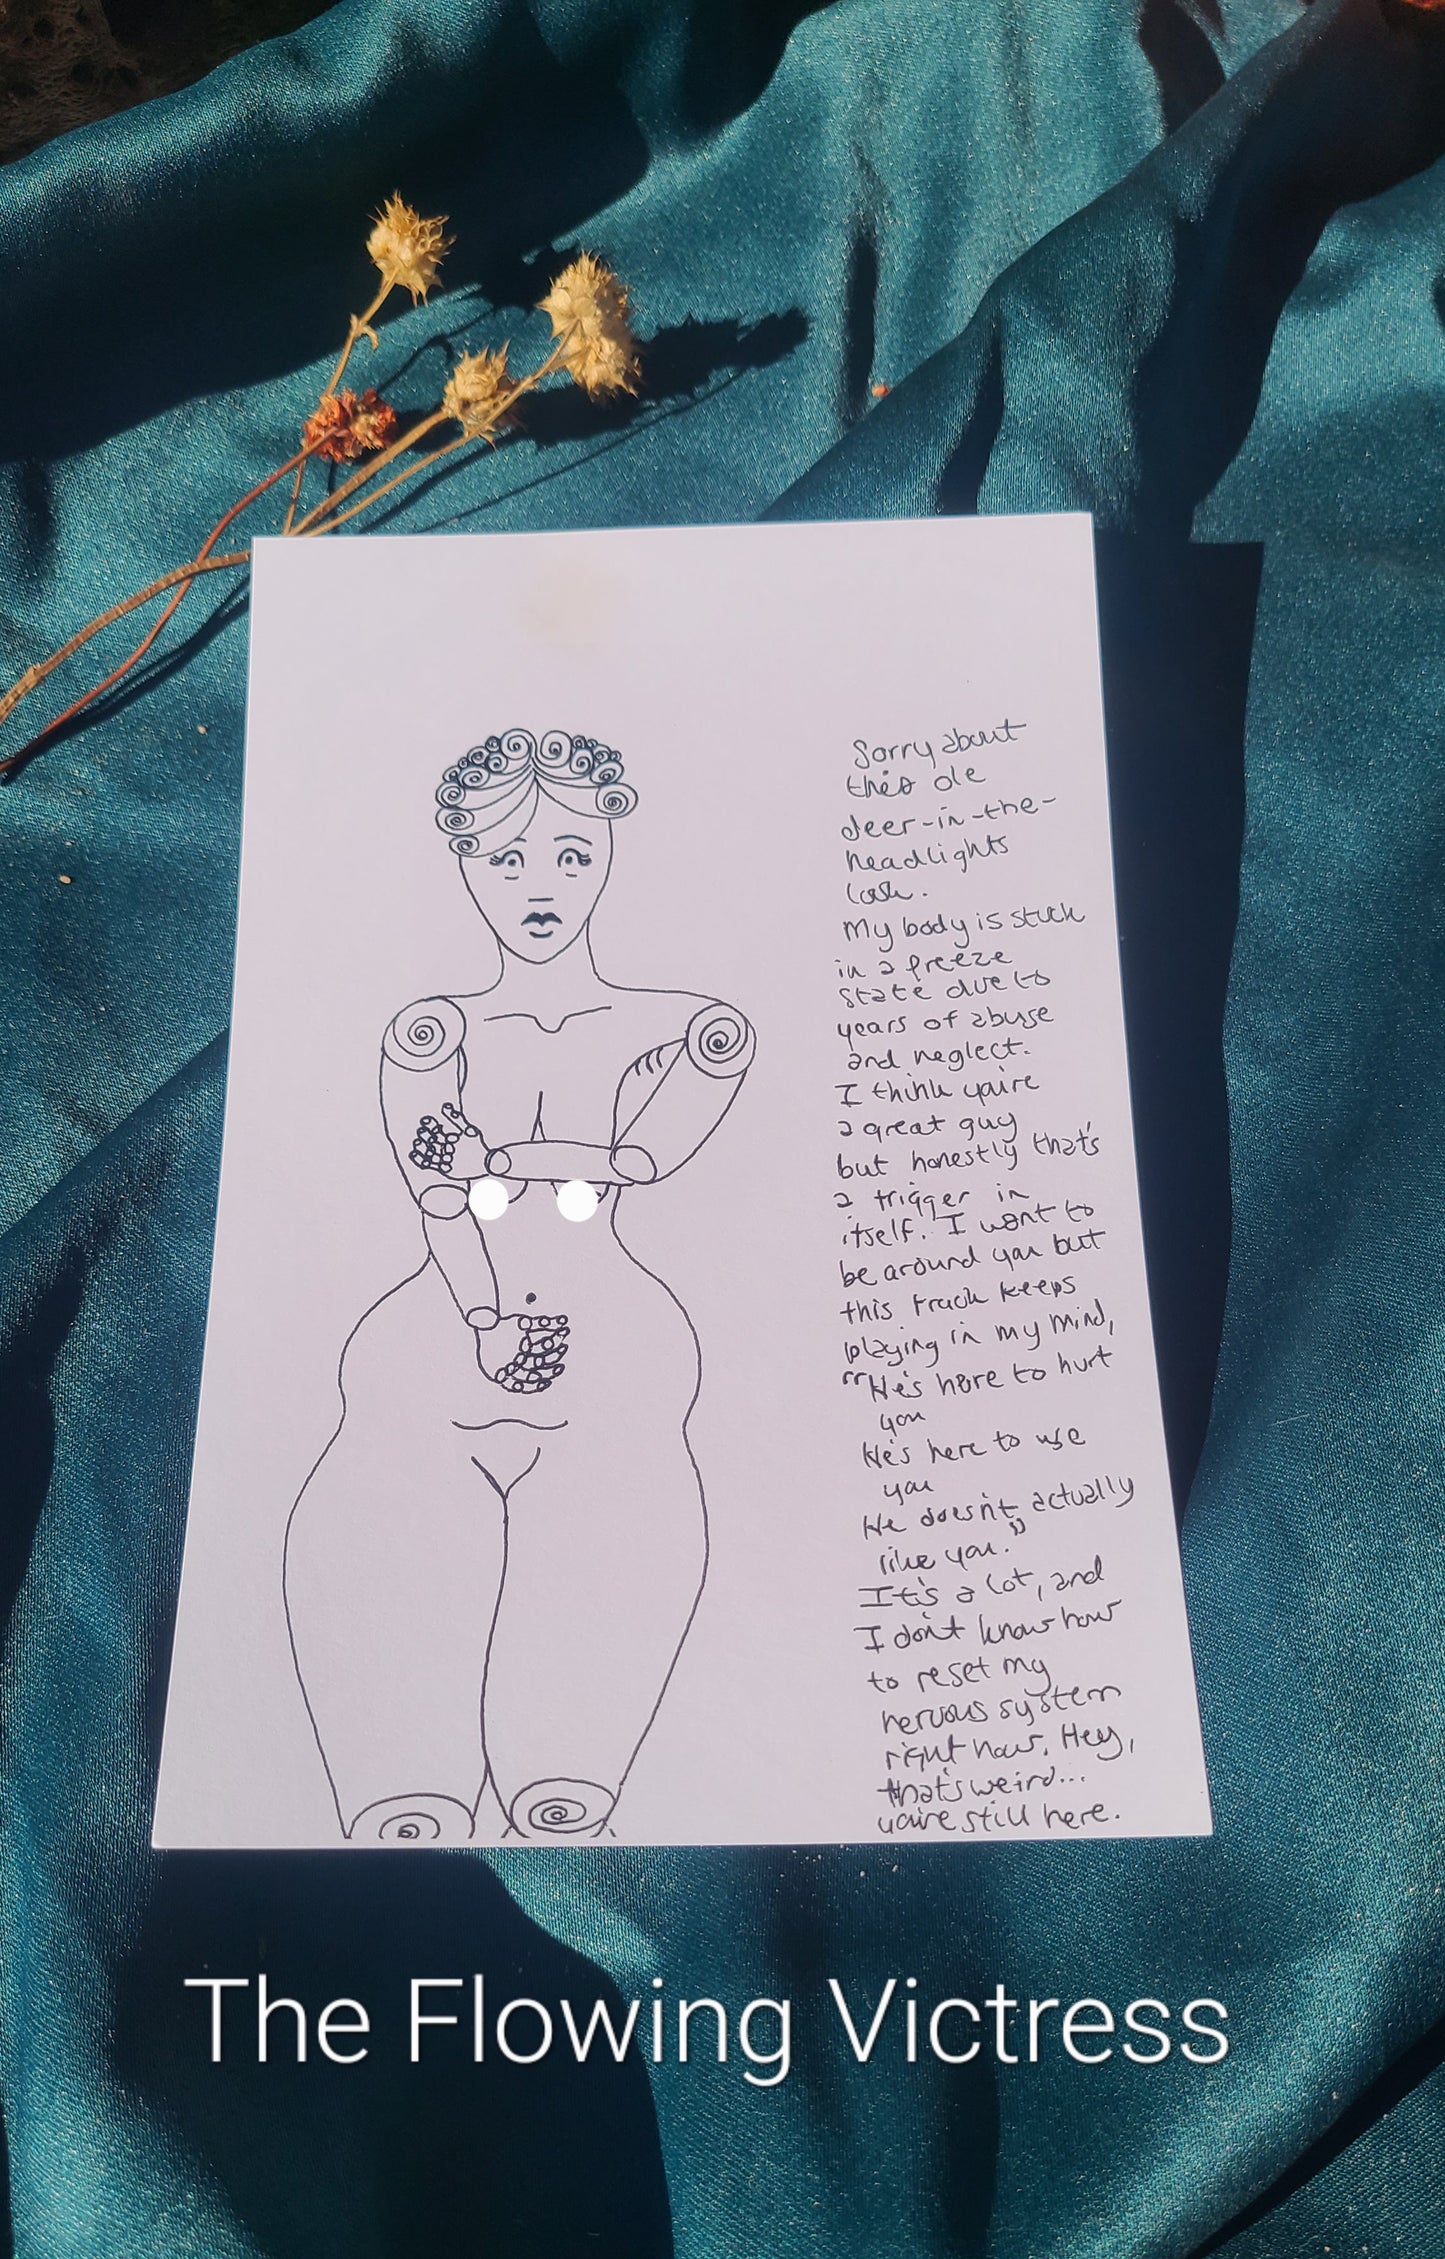 Sorry about
this ole
deer-in-the-
headlights
look.
My body is stuck
in a freeze
state due to
years of abuse
and neglect.
I think you're
a great guy
but honestly that's
a trigger in
itself. I want to
be around you but
this track keeps
playing in my mind,
"He's here to hurt
you
He's here to use
you
He doesn't actually
like you."
It's a lot, and
I don't know how
to reset my
nervous system
right now. Hey,
that's weird...
you're still here.
The Flowing Victress